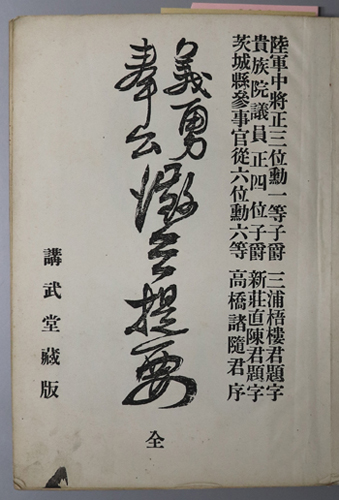 陸軍中將正三位勳一等子爵 三浦梧樓君題字
貴族院議員正四位子爵 新莊直陳君題字
茨城縣參事官從六位勳六等 高橋諸隨君序
義勇
奉公 提要 全
講武堂藏版